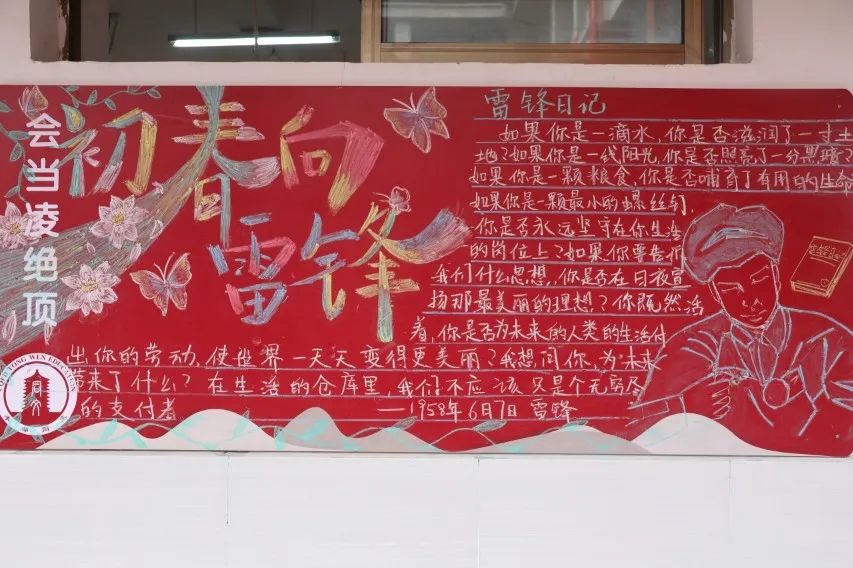 会当凌绝顶
初春向
雷锋
雷锋日记
如果你是一滴水,你是否滋润了一寸土
地?如果你是一线阳光,你是否照亮了一分黑暗?
如果你是一颗粮食,你是否哺育了有用的生命
如果你是一颗最小的螺丝钉,
你是否永远坚守在你生活
的岗位上?如果你要告诉
我们什么思想,你是否在日夜宣
扬那最美丽的理想?你既然活
着,你是否为未来的人类的生活付
出你的劳动,使世界一天天变得更美丽?我想问你,为未来
带来了什么?在生活的仓库里,我们不应该只是个无穷尽
的支付者
——1958年6月7日 雷锋
WEN EDUCATION